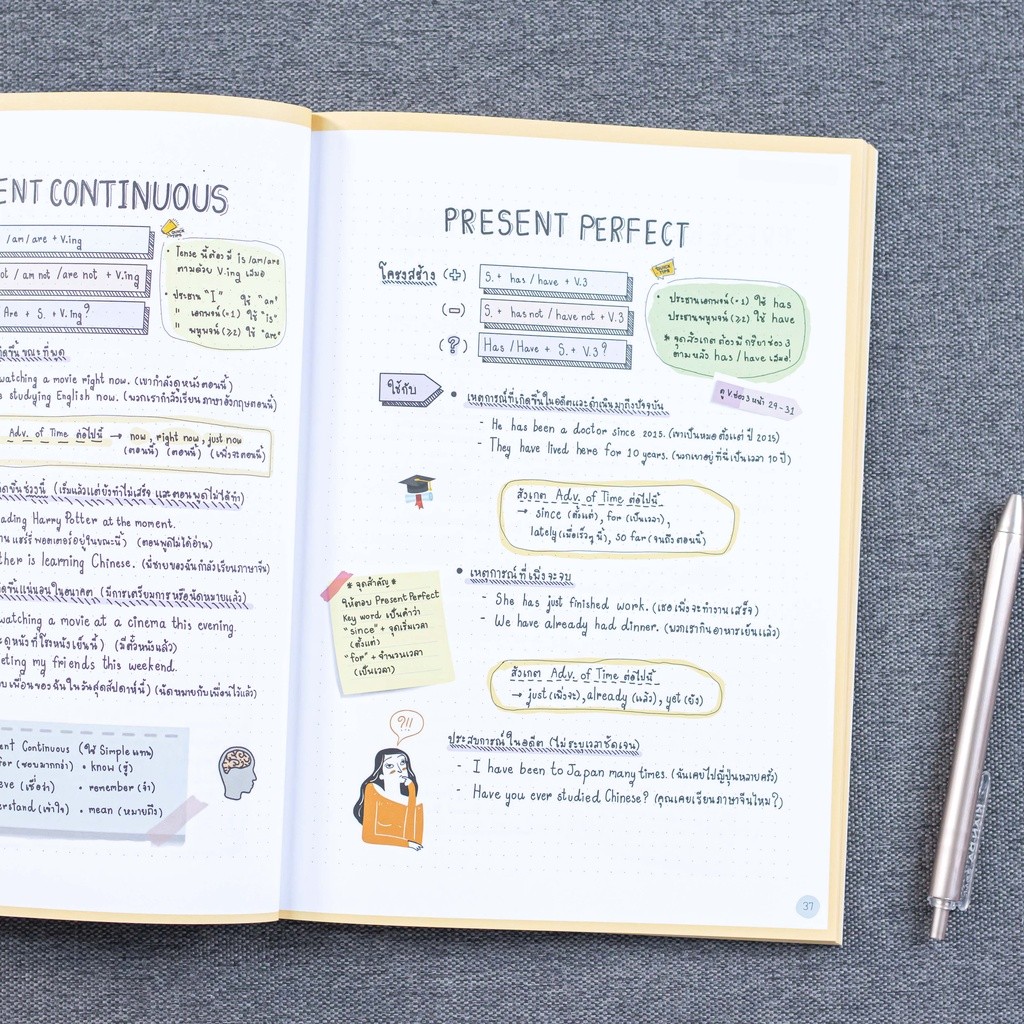 ENT CONTINUOUS
/am/are + V.ing
ot / am not /are not + V.ing
Are + S. + V.ing?
• Tense นี้ต้องมี is/am/are
ตามด้วย V.ing เสมอ
• ประธาน "I" ใช้ "am"
" เอกพจน์ (=1) ใช้ "is"
" พหูพจน์ (≥2) ใช้ "are"
กิดขึ้นขณะที่พูด
watching a movie right now. (เขากำลังดูหนังตอนนี้)
s studying English now. (พวกเรากำลังเรียนภาษาอังกฤษตอนนี้)
Adv. of Time ต่อไปนี้ → now, right now, just now
(ตอนนี้) (ตอนนี้) (เพิ่งจะตอนนี้)
กิดขึ้นช่วงนี้ (เริ่มแล้วแต่ยังทำไม่เสร็จ และตอนพูดไม่ได้ทำ)
ading Harry Potter at the moment.
าน แฮร์รี่ พอตเตอร์อยู่ในขณะนี้) (ตอนพูดไม่ได้อ่าน)
ther is learning Chinese. (พี่ชายของฉันกำลังเรียนภาษาจีน)
กิดขึ้นแน่นอนในอนาคต (มีการเตรียมการหรือนัดหมายแล้ว)
watching a movie at a cinema this evening.
ะดูหนังที่โรงหนังเย็นนี้) (มีตั๋วหนังแล้ว)
eting my friends this weekend.
บเพื่อนของฉันในวันสุดสัปดาห์นี้) (นัดหมายกับเพื่อนไว้แล้ว)
ent Continuous (ใช้ Simple แทน)
for (ชอบมากกว่า) • know (รู้)
eve (เชื่อว่า) • remember (จำ)
erstand (เข้าใจ) • mean (หมายถึง)
PRESENT PERFECT
โครงสร้าง (+) S. + has / have + V.3
(-) S. + has not / have not + V.3
(?) Has / Have + S. + V.3 ?
• ประธานเอกพจน์ (=1) ใช้ has
ประธานพหูพจน์ (≥2) ใช้ have
* จุดสังเกต ต้องมี กริยาช่อง 3
ตามหลัง has / have เสมอ!
ดู V.ช่อง 3 หน้า 29-31
ใช้กับ
• เหตุการณ์ที่เกิดขึ้นในอดีตและดำเนินมาถึงปัจจุบัน
- He has been a doctor since 2015. (เขาเป็นหมอตั้งแต่ ปี 2015)
- They have lived here for 10 years. (พวกเขาอยู่ที่นี่เป็นเวลา 10 ปี)
สังเกต Adv. of Time ต่อไปนี้
→ since (ตั้งแต่), for (เป็นเวลา),
lately (เมื่อเร็วๆ นี้), so far (จนถึงตอนนี้)
• เหตุการณ์ที่เพิ่งจะจบ
- She has just finished work. (เธอเพิ่งจะทำงานเสร็จ)
- We have already had dinner. (พวกเรากินอาหารเย็นแล้ว)
* จุดสำคัญ *
ให้ตอบ Present Perfect
Key word เป็นคำว่า
"since" + จุดเริ่มเวลา
(ตั้งแต่)
"for" + จำนวนเวลา
(เป็นเวลา)
สังเกต Adv. of Time ต่อไปนี้
→ just (เพิ่งจะ), already (แล้ว), yet (ยัง)
?!!
ประสบการณ์ในอดีต (ไม่ระบุเวลาชัดเจน)
- I have been to Japan many times. (ฉันเคยไปญี่ปุ่นหลายครั้ง)
- Have you ever studied Chinese? (คุณเคยเรียนภาษาจีนไหม?)
37